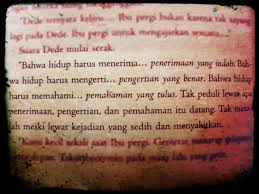 "Dede ternyata keliru... Ibu pergi bukan karena tak sayang
lagi pada Dede. Ibu pergi untuk mengajarkan sesuatu...
Suara Dede mulai serak.
"Bahwa hidup harus menerima... penerimaan yang indah. Bah-
wa hidup harus mengerti... pengertian yang benar. Bahwa hidup
harus memahami... pemahaman yang tulus. Tak peduli lewat apa
penerimaan, pengertian, dan pemahaman itu datang. Tak masa-
lah meski lewat kejadian yang sedih dan menyakitkan.
"Kami kecil sekali saat Ibu pergi.